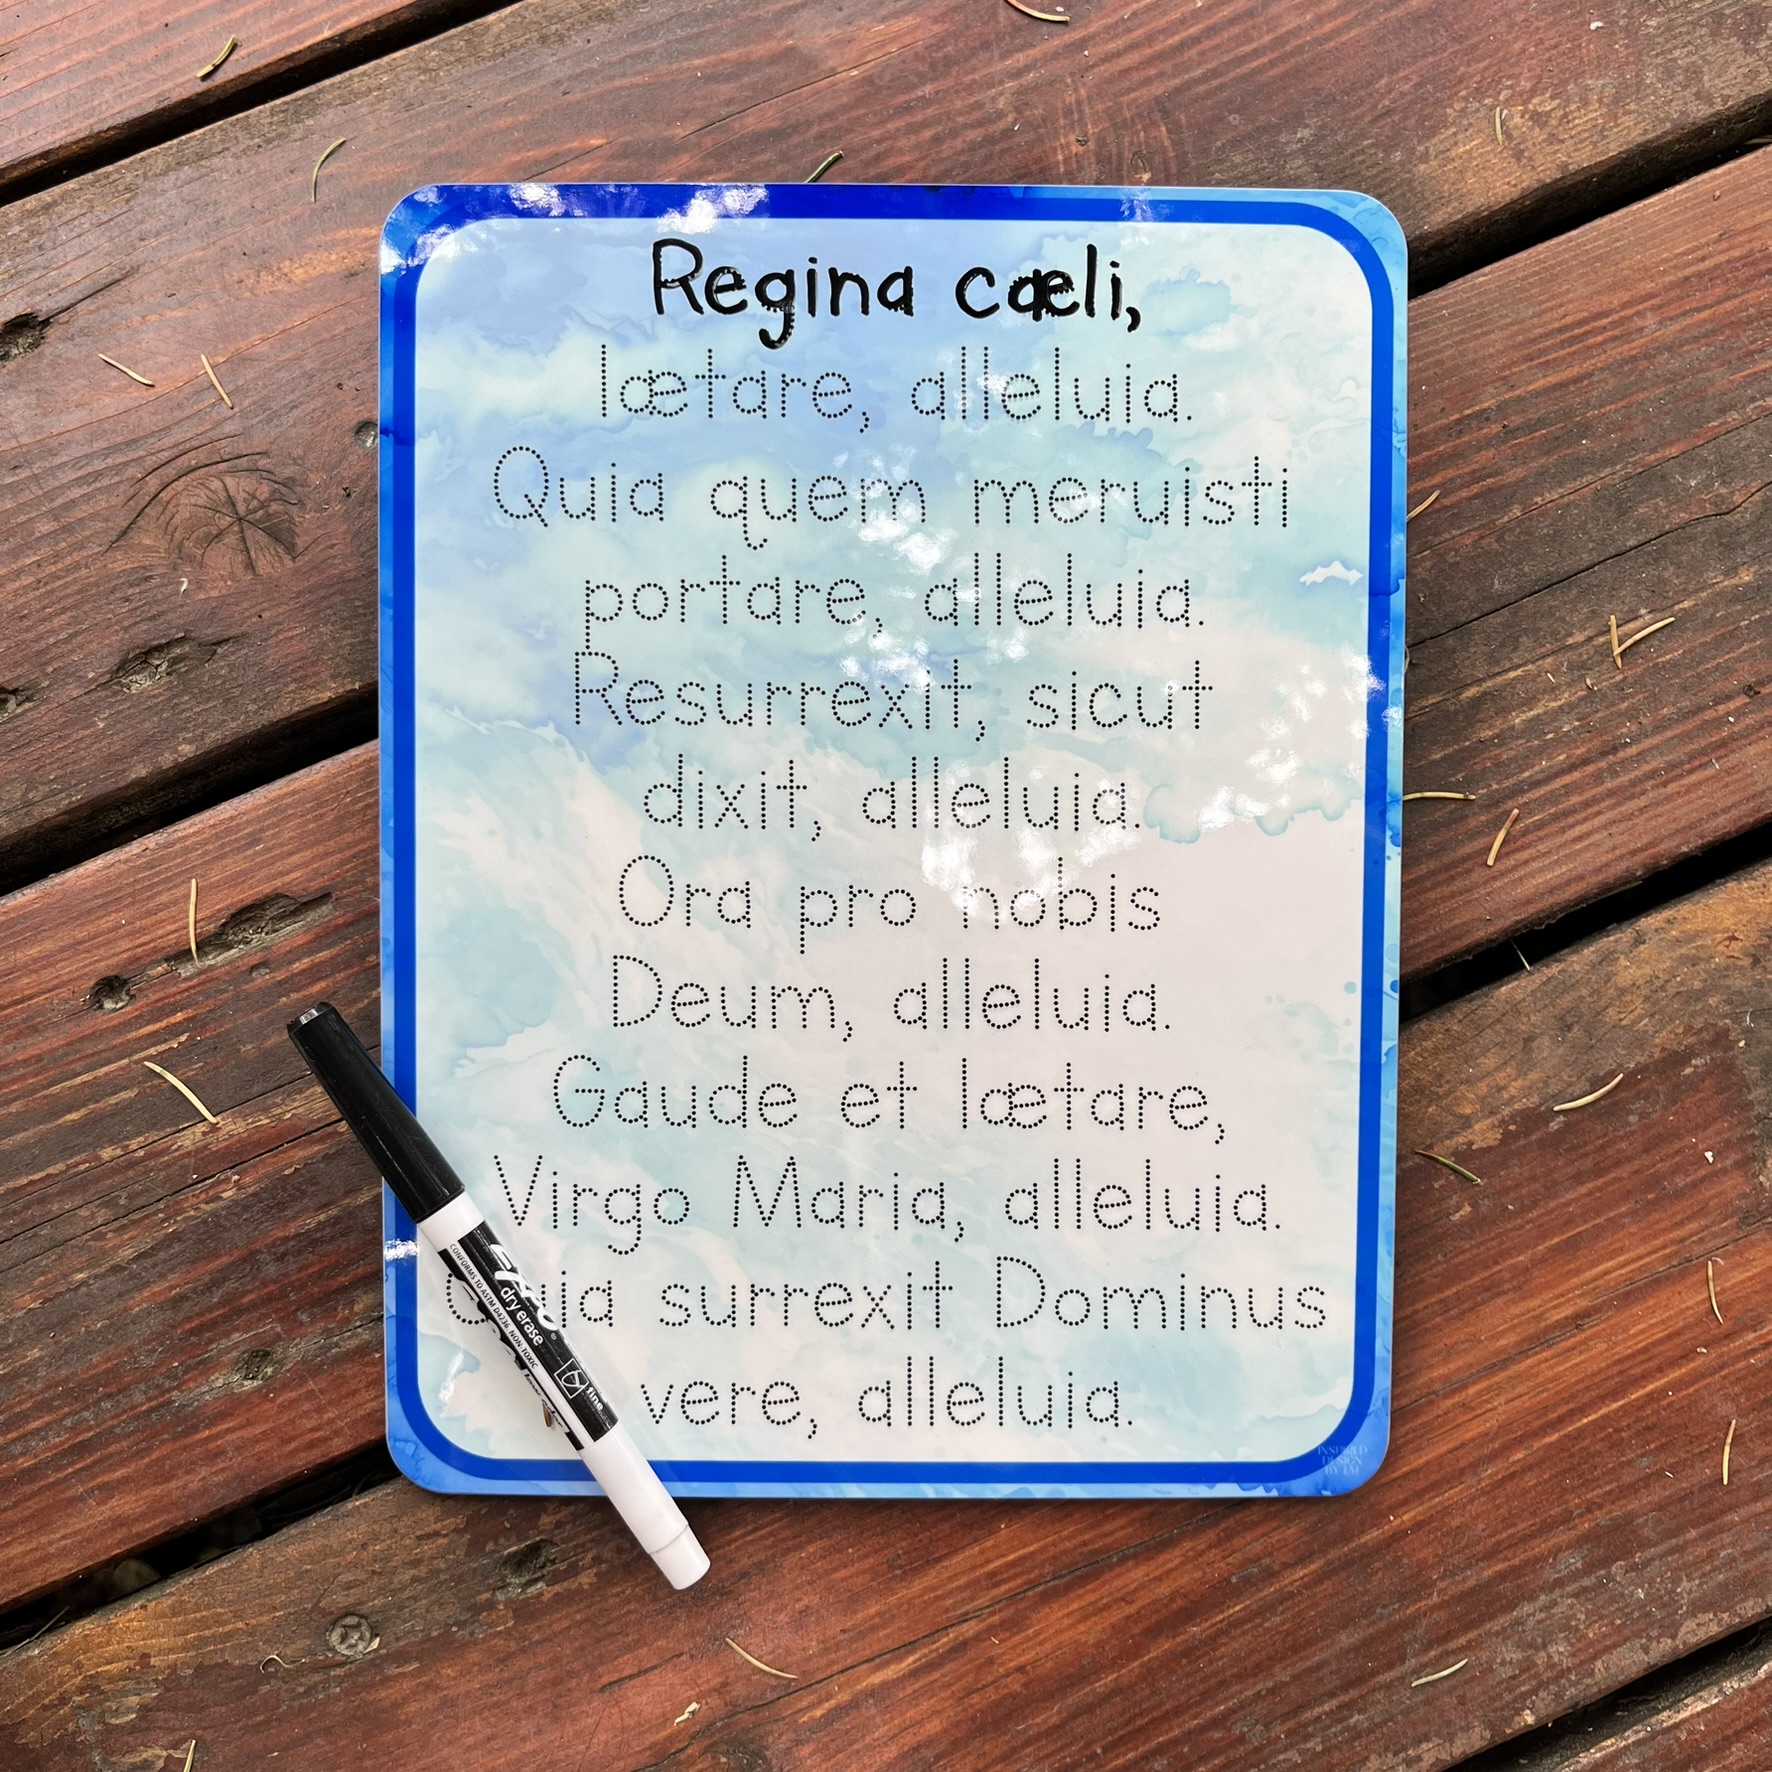 Regina cæli,
lætare, alleluia.
Quia quem meruisti
portare, alleluia.
Resurrexit, sicut
dixit, alleluia.
Ora pro nobis
Deum, alleluia.
Gaude et lætare,
Virgo Maria, alleluia.
Quia surrexit Dominus
vere, alleluia.
EXPO
dry erase
CONFORMS TO ASTM D4236 NON-TOXIC
fine
INSPIRED
DESIGN
BY LM